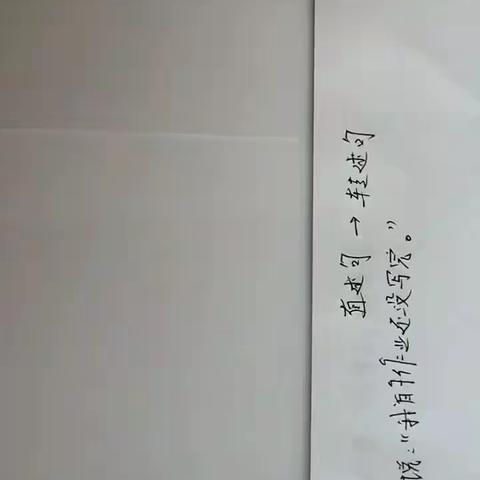 直述句 → 转述句
说:"我的作业还没写完。"